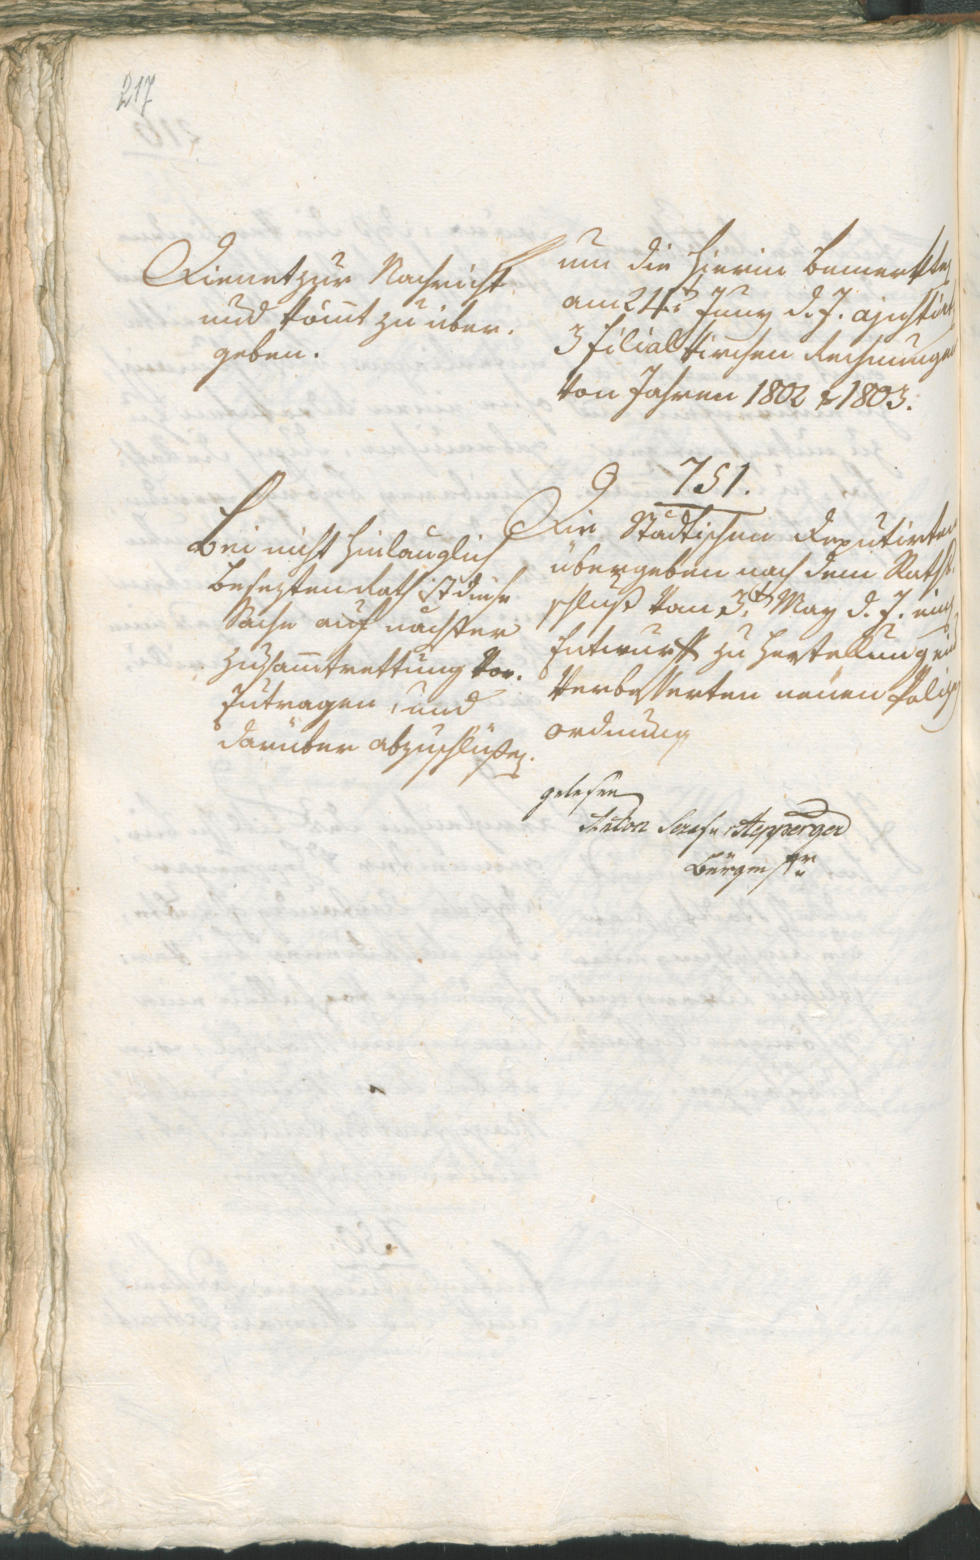 217
Dienet zur Nachricht
und kom̄t zu über-
geben.
um die hierin bemerkte
am 24t Juny d. J. ajustirte
3 Filialkirchen Rechnungen
von Jahren 1802 & 1803.
751.
Bei nicht hinlänglich
besezten Rath ist diese
Sache auf nächster
Zusam̄trettung vor-
zutragen, und
darüber abzuschlüßen.
Die Städtischen Deputirten
übergeben nach dem Raths-
schluß vom 3t May d. J. ein
Entwurff zu Herstellung ein
verbesserten neuen Polizey
ordnung
gelesen
Anton Steppberger
Bürgmstr